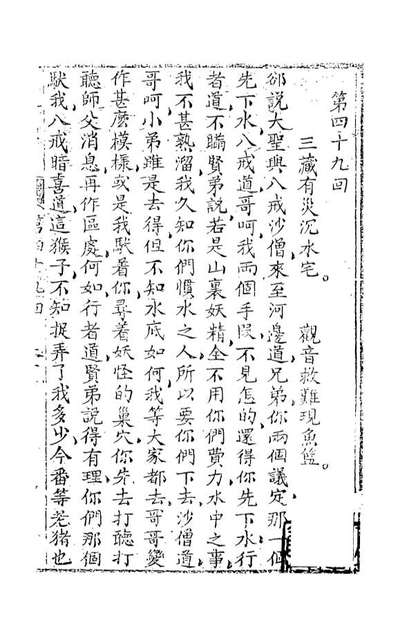 第四十九回
三藏有災沉水宅。 觀音救難現魚籃。
卻說大聖與八戒沙僧來至河邊道兄弟你兩個議定那一個
先下水八戒道哥呵我兩個手段不見怎的還得你先下水行
者道不瞞賢弟說若是山裏妖精全不用你們費力水中之事
我不甚熟溜我久知你們慣水之人所以要你們下去沙僧道
哥呵小弟雖是去得但不知水底如何我等大家都去哥哥變
作甚麼模樣或是我馱着你尋着妖怪的巢穴你先去打聽打
聽師父消息再作區處何如行者道賢弟說得有理你們那個
馱我八戒暗喜道這猴子不知捉弄了我多少今番等老猪也
第四十九回